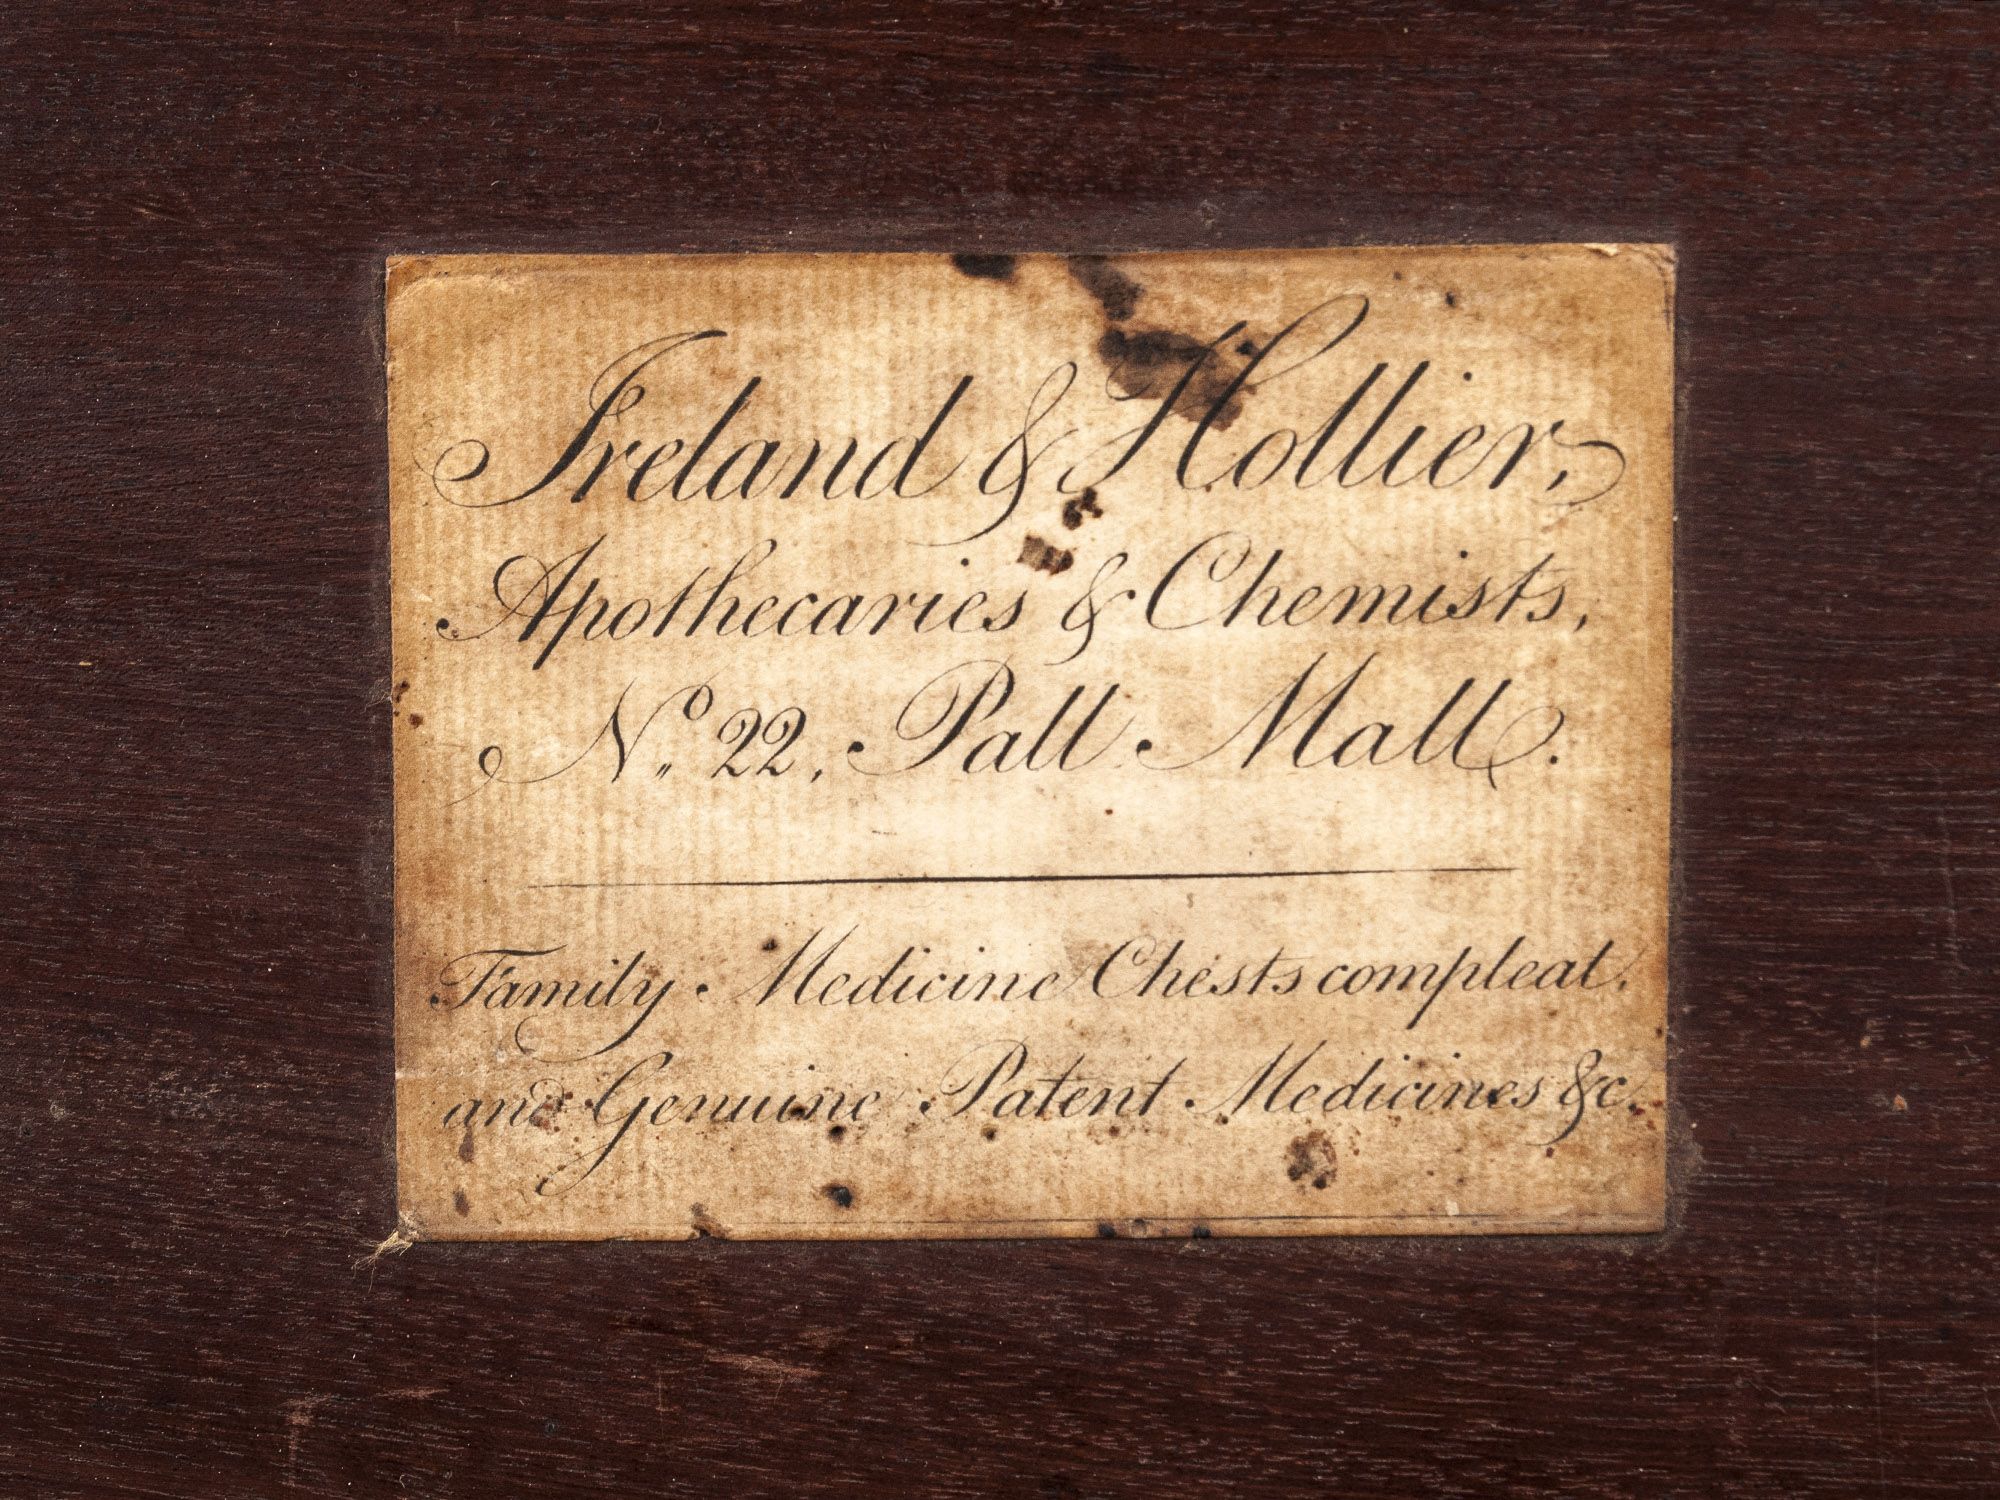 Ireland & Hollier,
Apothecaries & Chemists,
No. 22, Pall Mall.
Family Medicine Chests compleat.
and Genuine Patent Medicines &c.